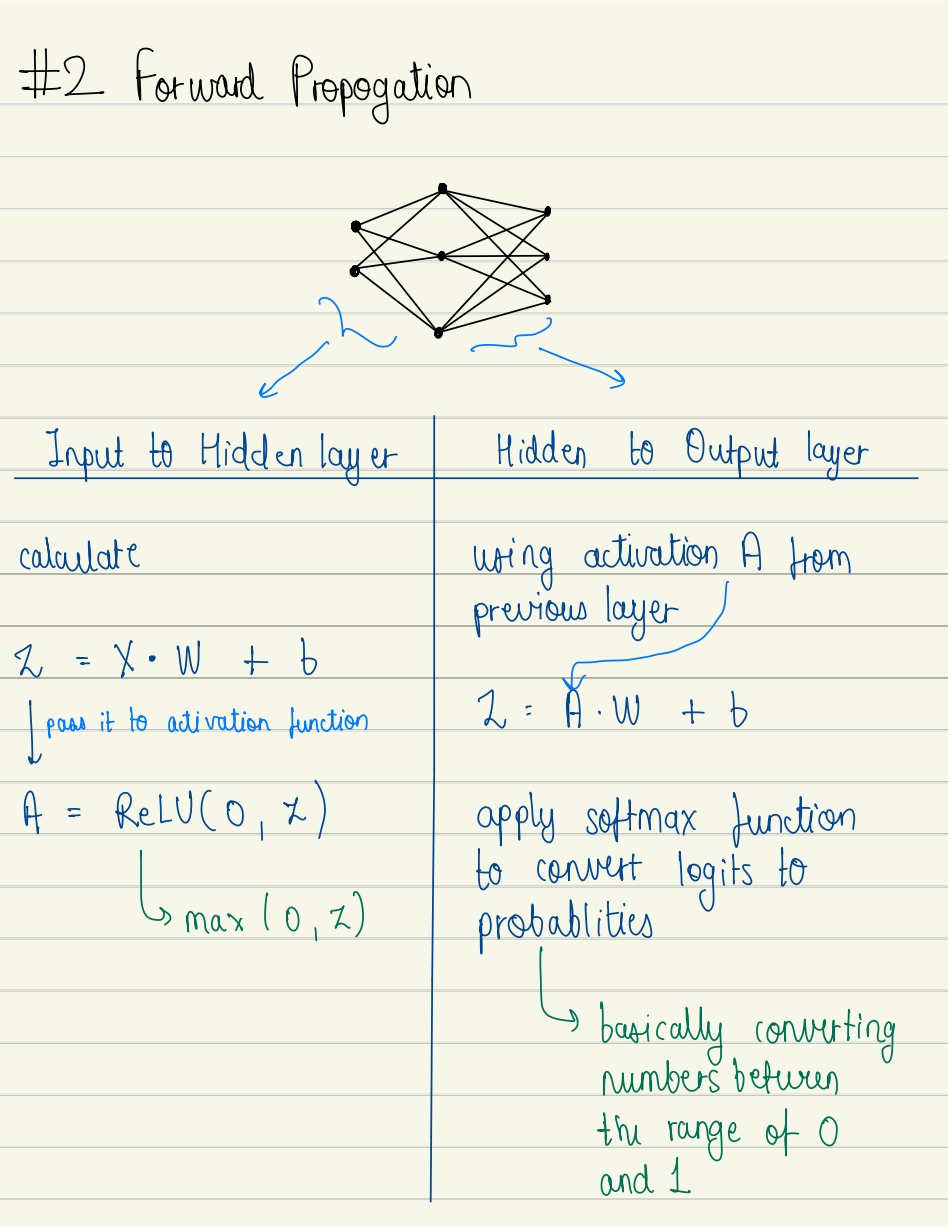 #2 Forward Propogation
Input to Hidden layer
calculate
Z = X · W + b
pass it to activation function
A = ReLU(0, Z)
max(0, Z)
Hidden to Output layer
using activation A from
previous layer
Z = A · W + b
apply softmax function
to convert logits to
probablities
basically converting
numbers between
the range of 0
and 1